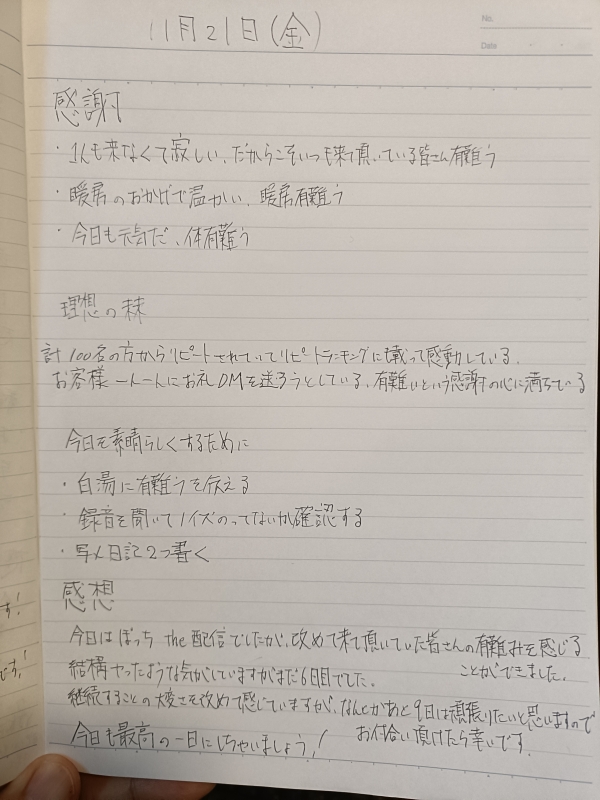 No.
Date
11月21日(金)
感謝
・1人も来なくて寂しい、だからこそいつも来て頂いている皆さん有難う
・暖房のおかげで温かい、暖房有難う
・今日も元気だ、体有難う
理想の
計100名の方からリピートされていてリピートランキングにも載って感動している。
お客様一人一人にお礼DMを送ろうとしている、有難いという感謝の心に満ちている
今日を素晴らしくするために
・白湯に有難うを伝える
・録音を聞いてノイズのってないか確認する
・写メ日記2つ書く
感想
今日はぼっち the 配信でしたが、改めて来て頂いていた皆さんの有難みを感じる
ことができました。
結構やったような気がしていますがまだ6日目でした。
継続することの大変さを改めて感じていますが、なんとかあと9日は頑張りたいと思いますので
お付合い頂けたら幸いです。
今日も最高の一日にしちゃいましょう!
す!
です!